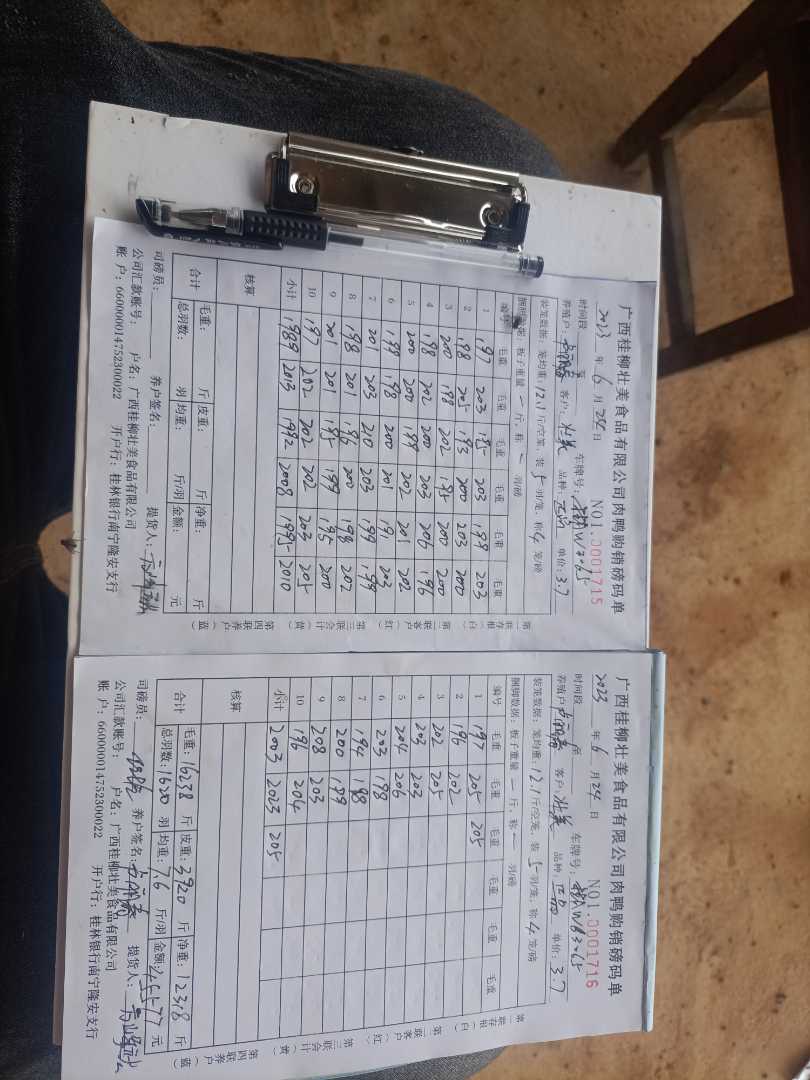 广西桂柳壮美食品有限公司肉鸭购销磅码单
NO1.0001715
2023 年 6 月 24 日
时间段 至 车牌号:
养殖户: 客户:壮美 品种: 单价:3.7
装笼数据:笼均重:12.1 斤/空笼,装 5 羽/笼,称 4 笼/磅
捆脚数据:板子重量 一 斤,称 一 羽/磅
编号 毛重 毛重 毛重 毛重 毛重 毛重
1 197 203 195 203 198 203
2 198 205 193 200 203 200
3 200 198 202 195 200 200
4 198 202 200 203 206 196
5 200 200 199 202 201 202
6 199 198 200 201 191 203
7 201 203 210 203 199 199
8 198 201 196 200 198 202
9 201 201 195 199 196 200
10 197 202 202 202 203 205
小计 1989 2013 1992 2008 1995 2010
核算
合计 毛重: 斤 皮重: 斤 净重: 斤
总羽数: 羽 均重: 斤/羽 金额: 元
司磅员: 养户签名: 提货人:
公司汇款账号: 户名:广西桂柳壮美食品有限公司
账 户:660000014752300022 开户行:桂林银行南宁隆安支行
第一联存根(白) 第二联客户(红) 第三联会计(黄) 第四联养户(蓝)
广西桂柳壮美食品有限公司肉鸭购销磅码单
NO1.0001716
2023 年 6 月 24 日
时间段 至 车牌号:
养殖户: 客户:壮美 品种: 单价:3.7
装笼数据:笼均重:12.1 斤/空笼,装 5 羽/笼,称 4 笼/磅
捆脚数据:板子重量 一 斤,称 一 羽/磅
编号 毛重 毛重 毛重 毛重 毛重 毛重
1 197 205 205
2 196 202
3 202 205
4 203 203
5 204 206
6 203 198
7 194 198
8 200 199
9 208 203
10 196 204
小计 2003 2023 205
核算
合计 毛重:16238 斤 皮重:3920 斤 净重:12318 斤
总羽数:1620 羽 均重:7.6 斤/羽 金额:45577 元
司磅员: 养户签名: 提货人:
公司汇款账号: 户名:广西桂柳壮美食品有限公司
账 户:660000014752300022 开户行:桂林银行南宁隆安支行
第一联存根(白) 第二联客户(红) 第三联会计(黄) 第四联养户(蓝)